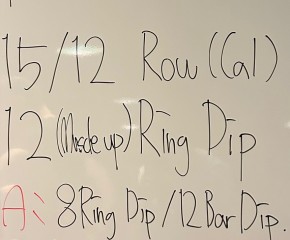 15/12 Row (Cal)
12 (Muscle up) Ring Dip
A: 8 Ring Dip / 12 Bar Dip.